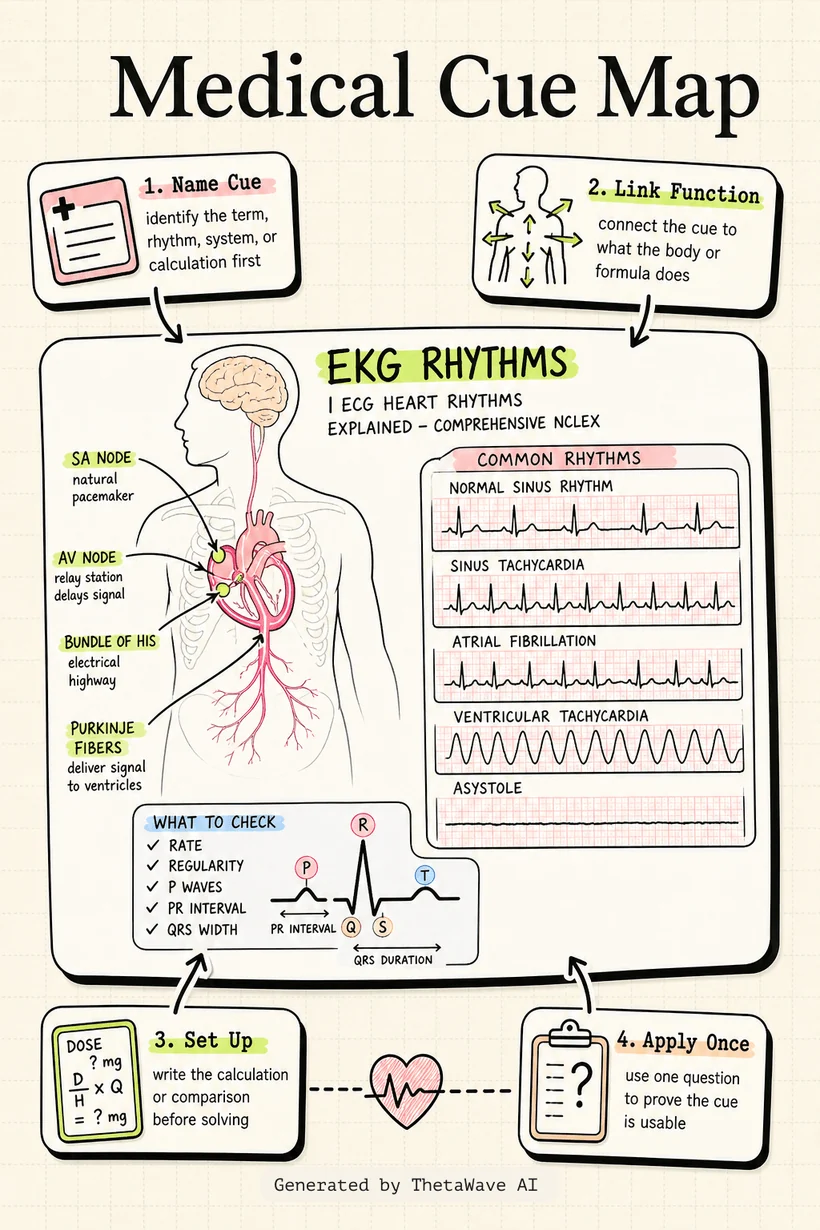 Medical Cue Map
1. Name Cue
identify the term,
rhythm, system, or
calculation first
2. Link Function
connect the cue to
what the body or
formula does
EKG RHYTHMS
| ECG HEART RHYTHMS
EXPLAINED – COMPREHENSIVE NCLEX
SA NODE
natural
pacemaker
AV NODE
relay station
delays signal
BUNDLE OF HIS
electrical
highway
PURKINJE
FIBERS
deliver signal
to ventricles
COMMON RHYTHMS
NORMAL SINUS RHYTHM
SINUS TACHYCARDIA
ATRIAL FIBRILLATION
VENTRICULAR TACHYCARDIA
ASYSTOLE
WHAT TO CHECK
✓ RATE
✓ REGULARITY
✓ P WAVES
✓ PR INTERVAL
✓ QRS WIDTH
R
P
T
PR INTERVAL
Q
S
QRS DURATION
DOSE
? mg
D
H
x Q
= ? mg
3. Set Up
write the calculation
or comparison
before solving
?
4. Apply Once
use one question
to prove the cue
is usable
Generated by ThetaWave AI